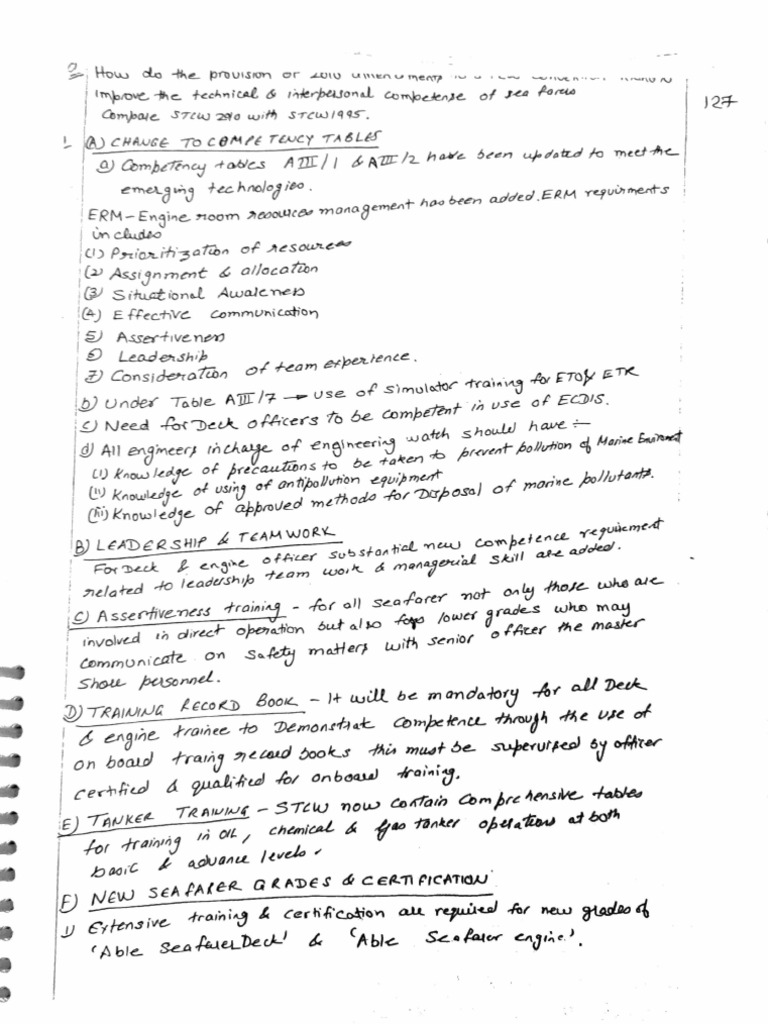 Q How do the provision of 2010 amendments
improve the technical & interpersonal competense of sea farers
Compare STCW 2010 with STCW 1995.
127
1 (A) CHANGE TO COMPETENCY TABLES
a) Competency tables AIII/1 & AIII/2 have been updated to meet the
emerging technologies.
ERM - Engine room resources management has been added. ERM requirments
includes
(1) Prioritization of resources
(2) Assignment & allocation
(3) Situational Awareness
(4) Effective communication
5) Assertiveness
6) Leadership
7) Consideration of team experience.
b) Under Table AIII/7 → use of simulator training for ETO & ETR
c) Need for Deck officers to be competent in use of ECDIS.
d) All engineers incharge of engineering watch should have :-
(i) Knowledge of precautions to be taken to prevent pollution of Marine Enviroment
(ii) Knowledge of using of antipollution equipment
(iii) Knowledge of approved methods for Disposal of marine pollutants.
B) LEADERSHIP & TEAMWORK
For Deck & engine officer substantial new competence requirement
related to leadership team work & managerial skill are added.
C) Assertiveness training - for all seafarer not only those who are
involved in direct operation but also for lower grades who may
communicate on safety matters with senior officer the master
Shore personnel.
D) TRAINING RECORD BOOK - It will be mandatory for all Deck
& engine trainee to Demonstrate competence through the use of
on board traing record books this must be supervised by officer
certified & qualified for onboard training.
E) TANKER TRAINING - STCW now contain comprehensive tables
for training in OIL, chemical & gas tanker operations at both
basic & advance levels.
F) NEW SEAFARER GRADES & CERTIFICATION
1) Extensive training & certification are required for new grades of
'Able Seafarer Deck' & 'Able Seafarer engine'.